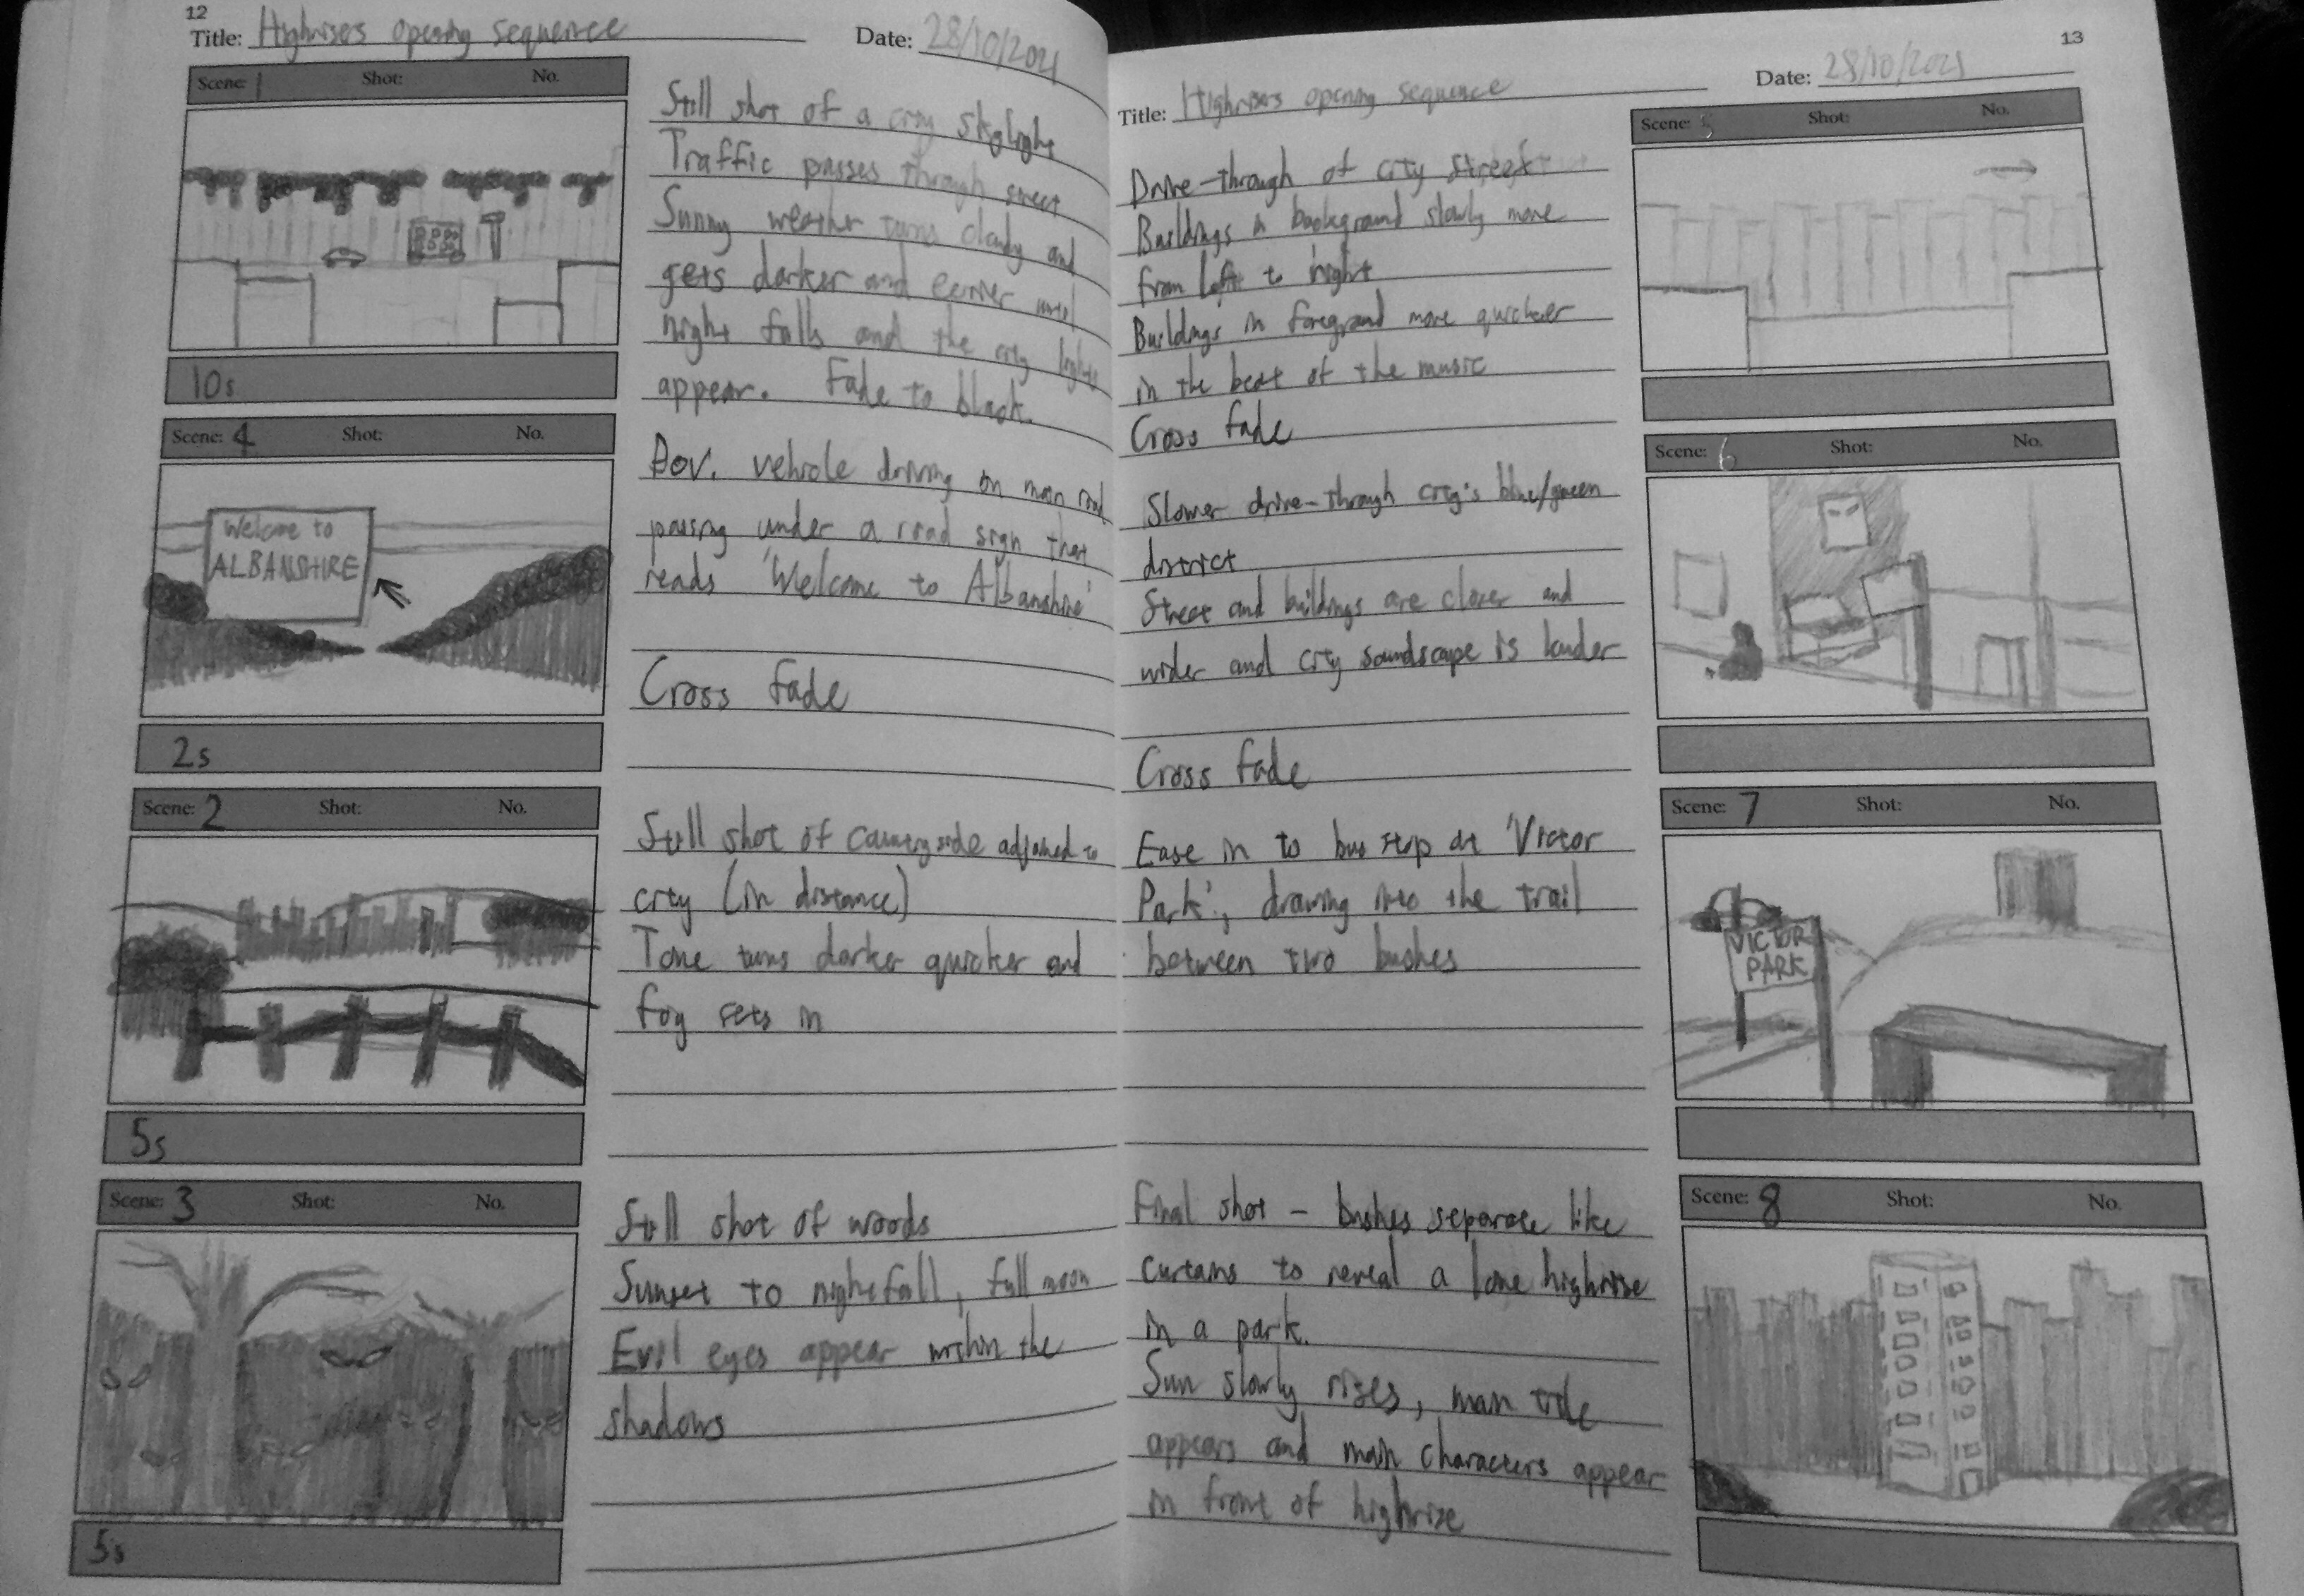 12
Title: Highrisers opening sequence Date: 28/10/2021
Scene: 1 Shot: No.
10s
Still shot of a city skylight
Traffic passes through street
Sunny weather turns cloudy and
gets darker and eerier until
night falls and the city lights
appear. Fade to black.
Scene: 4 Shot: No.
Welcome to
ALBANSHIRE
2s
P.O.V. vehicle driving on main road
passing under a road sign that
reads 'Welcome to Albanshire'
Cross fade
Scene: 2 Shot: No.
5s
Still shot of countryside adjoined to
city (in distance)
Tone turns darker quicker and
fog sets in
Scene: 3 Shot: No.
5s
Still shot of woods
Sunset to nightfall, full moon
Evil eyes appear within the
shadows
13
Title: Highrisers opening sequence Date: 28/10/2021
Drive-through of city street
Buildings in background slowly move
from left to right
Buildings in foreground move quicker
in the beat of the music
Cross fade
Scene: 5 Shot: No.
Slower drive-through city's blue/green
district
Street and buildings are closer and
wider and city soundscape is louder
Cross fade
Scene: 6 Shot: No.
Ease in to bus stop at 'Victor
Park', drawing into the trail
between two bushes
Scene: 7 Shot: No.
VICTOR
PARK
Final shot - bushes separate like
curtains to reveal a lone highrise
in a park.
Sun slowly rises, main title
appears and main characters appear
in front of highrise
Scene: 8 Shot: No.